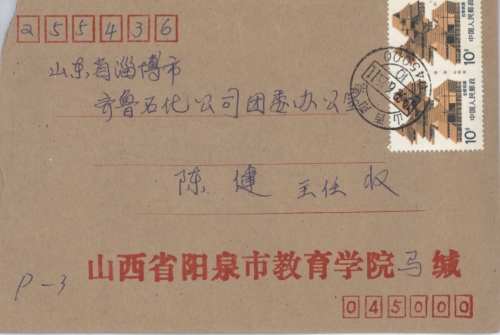 255436
山东省淄博市
齐鲁石化公司团委办公室
陈健 主任 收
山西省阳泉市教育学院马缄
045000
P-3
10分
中国人民邮政
10分
中国人民邮政
山西
045000